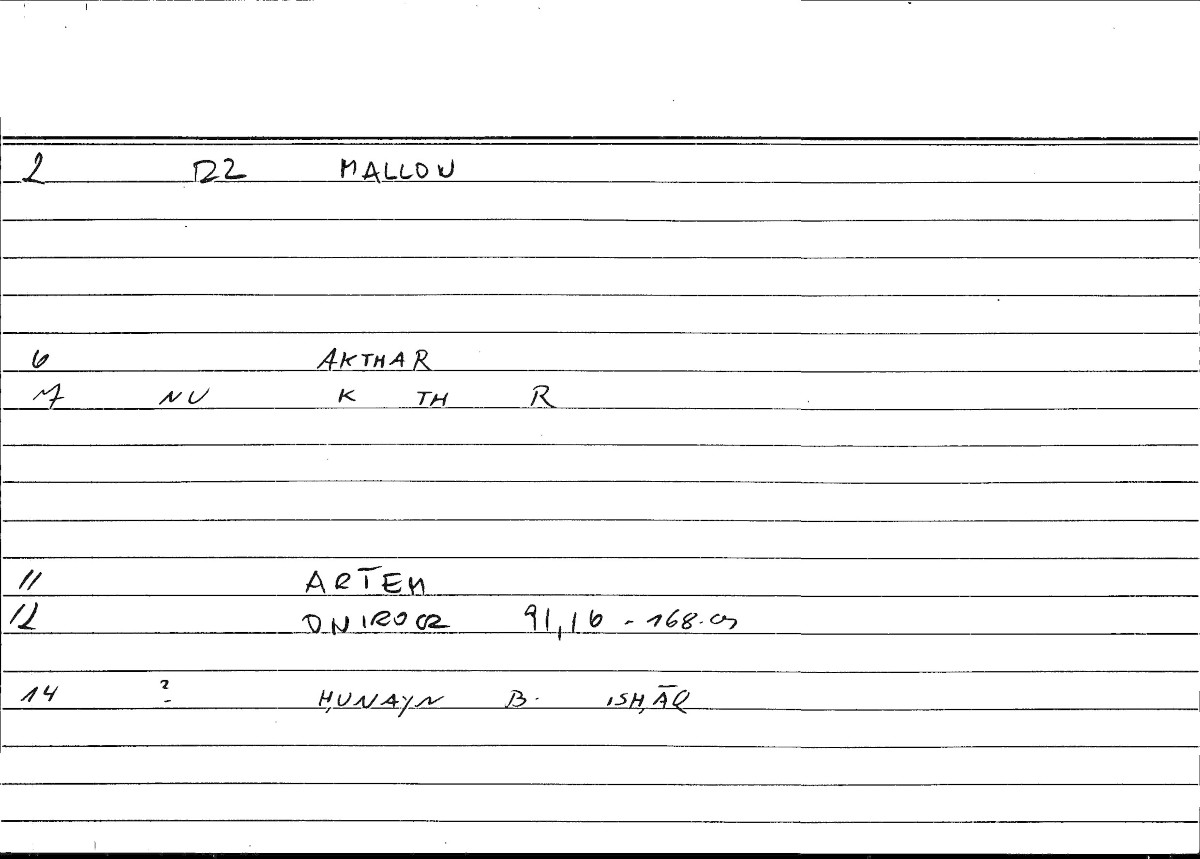 2 MALLON
6 AKTHAR
7 NU K TH R
11 ARTEM
12 ONIROCR 91,16 -
14 2 H,UNAYN B. ISH,ĀQ